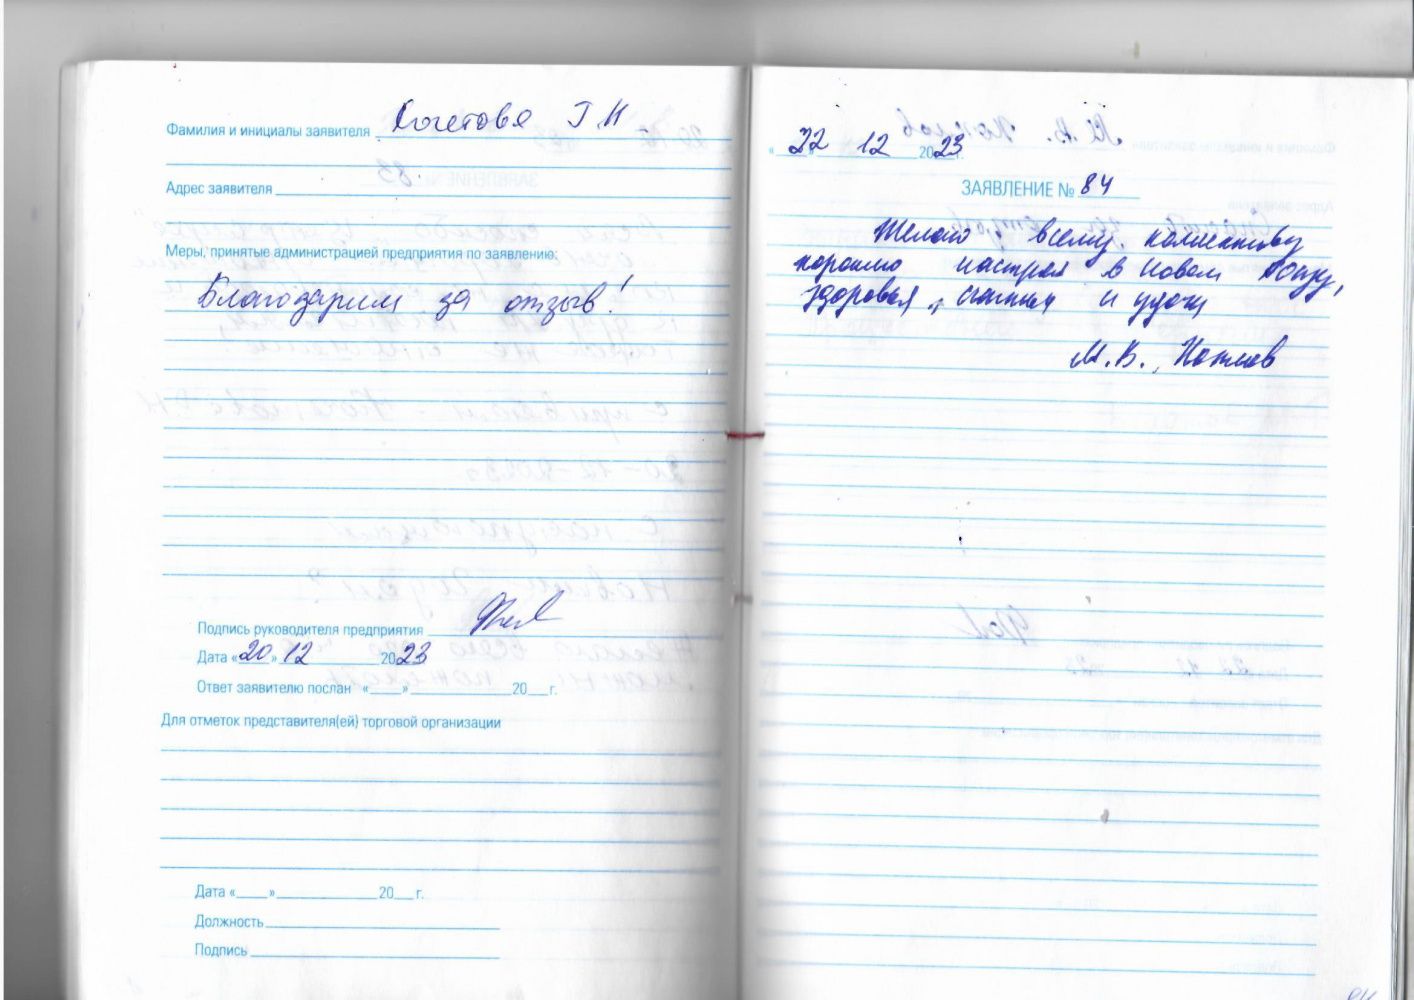 Фамилия и инициалы заявителя Кочетова Г.Н
Адрес заявителя
Меры, принятые администрацией предприятия по заявлению:
Благодарим за отзыв!
Подпись руководителя предприятия
Дата «20» 12 2023
Ответ заявителю послан «___» ___ 20__г.
Для отметок представителя(ей) торговой организации
Дата «___» ___ 20__г.
Должность
Подпись
«22» 12 2023г.
ЗАЯВЛЕНИЕ № 84
Желаю всему коллективу
хорошо настроя в Новом Году,
здоровья, счастья и удачи
М.В.